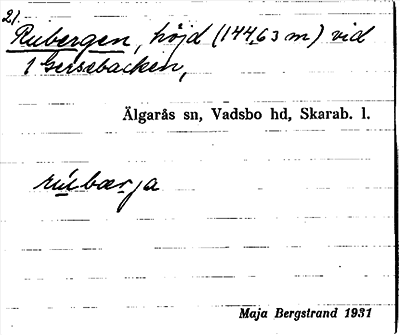 21.
Rubergen, höjd (144,63 m) vid
1 Gersebacken,
Älgarås sn, Vadsbo hd, Skarab. l.
rúbærja
Maja Bergstrand 1931